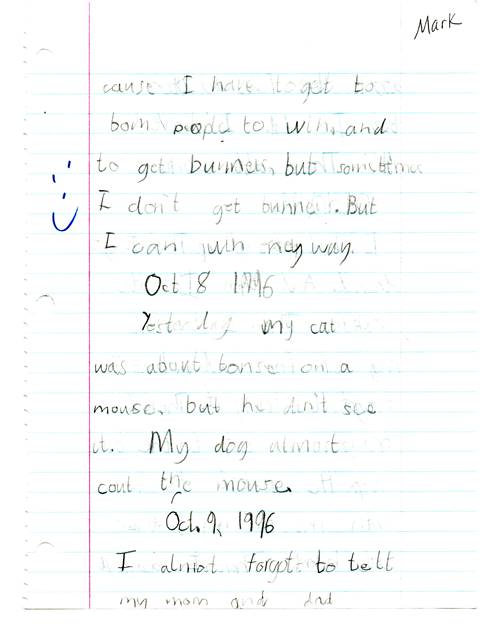 Mark
cause I have to get to
bom people to win, and
to get bunners, but sometimes
I don't get bunners. But
I can win neyway.
Oct 8 1996
Yesterday my cat
was about bonse on a
mouse, but he din't see
it. My dog almost
cout the mouse.
Oct. 9, 1996
I almot forgot to tell
my mom and dad